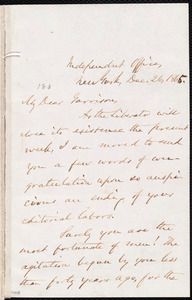 Independent Office,
New York, Dec. 26, 1865.
My Dear Garrison,
As the Liberator will
close its existence the present
week, I am moved to send
you a few words of con-
gratulation upon so auspi-
cious an ending of your
editorial labors.
Surely you are the
most fortunate of men! The
agitation begun by you less
than forty years ago, for the